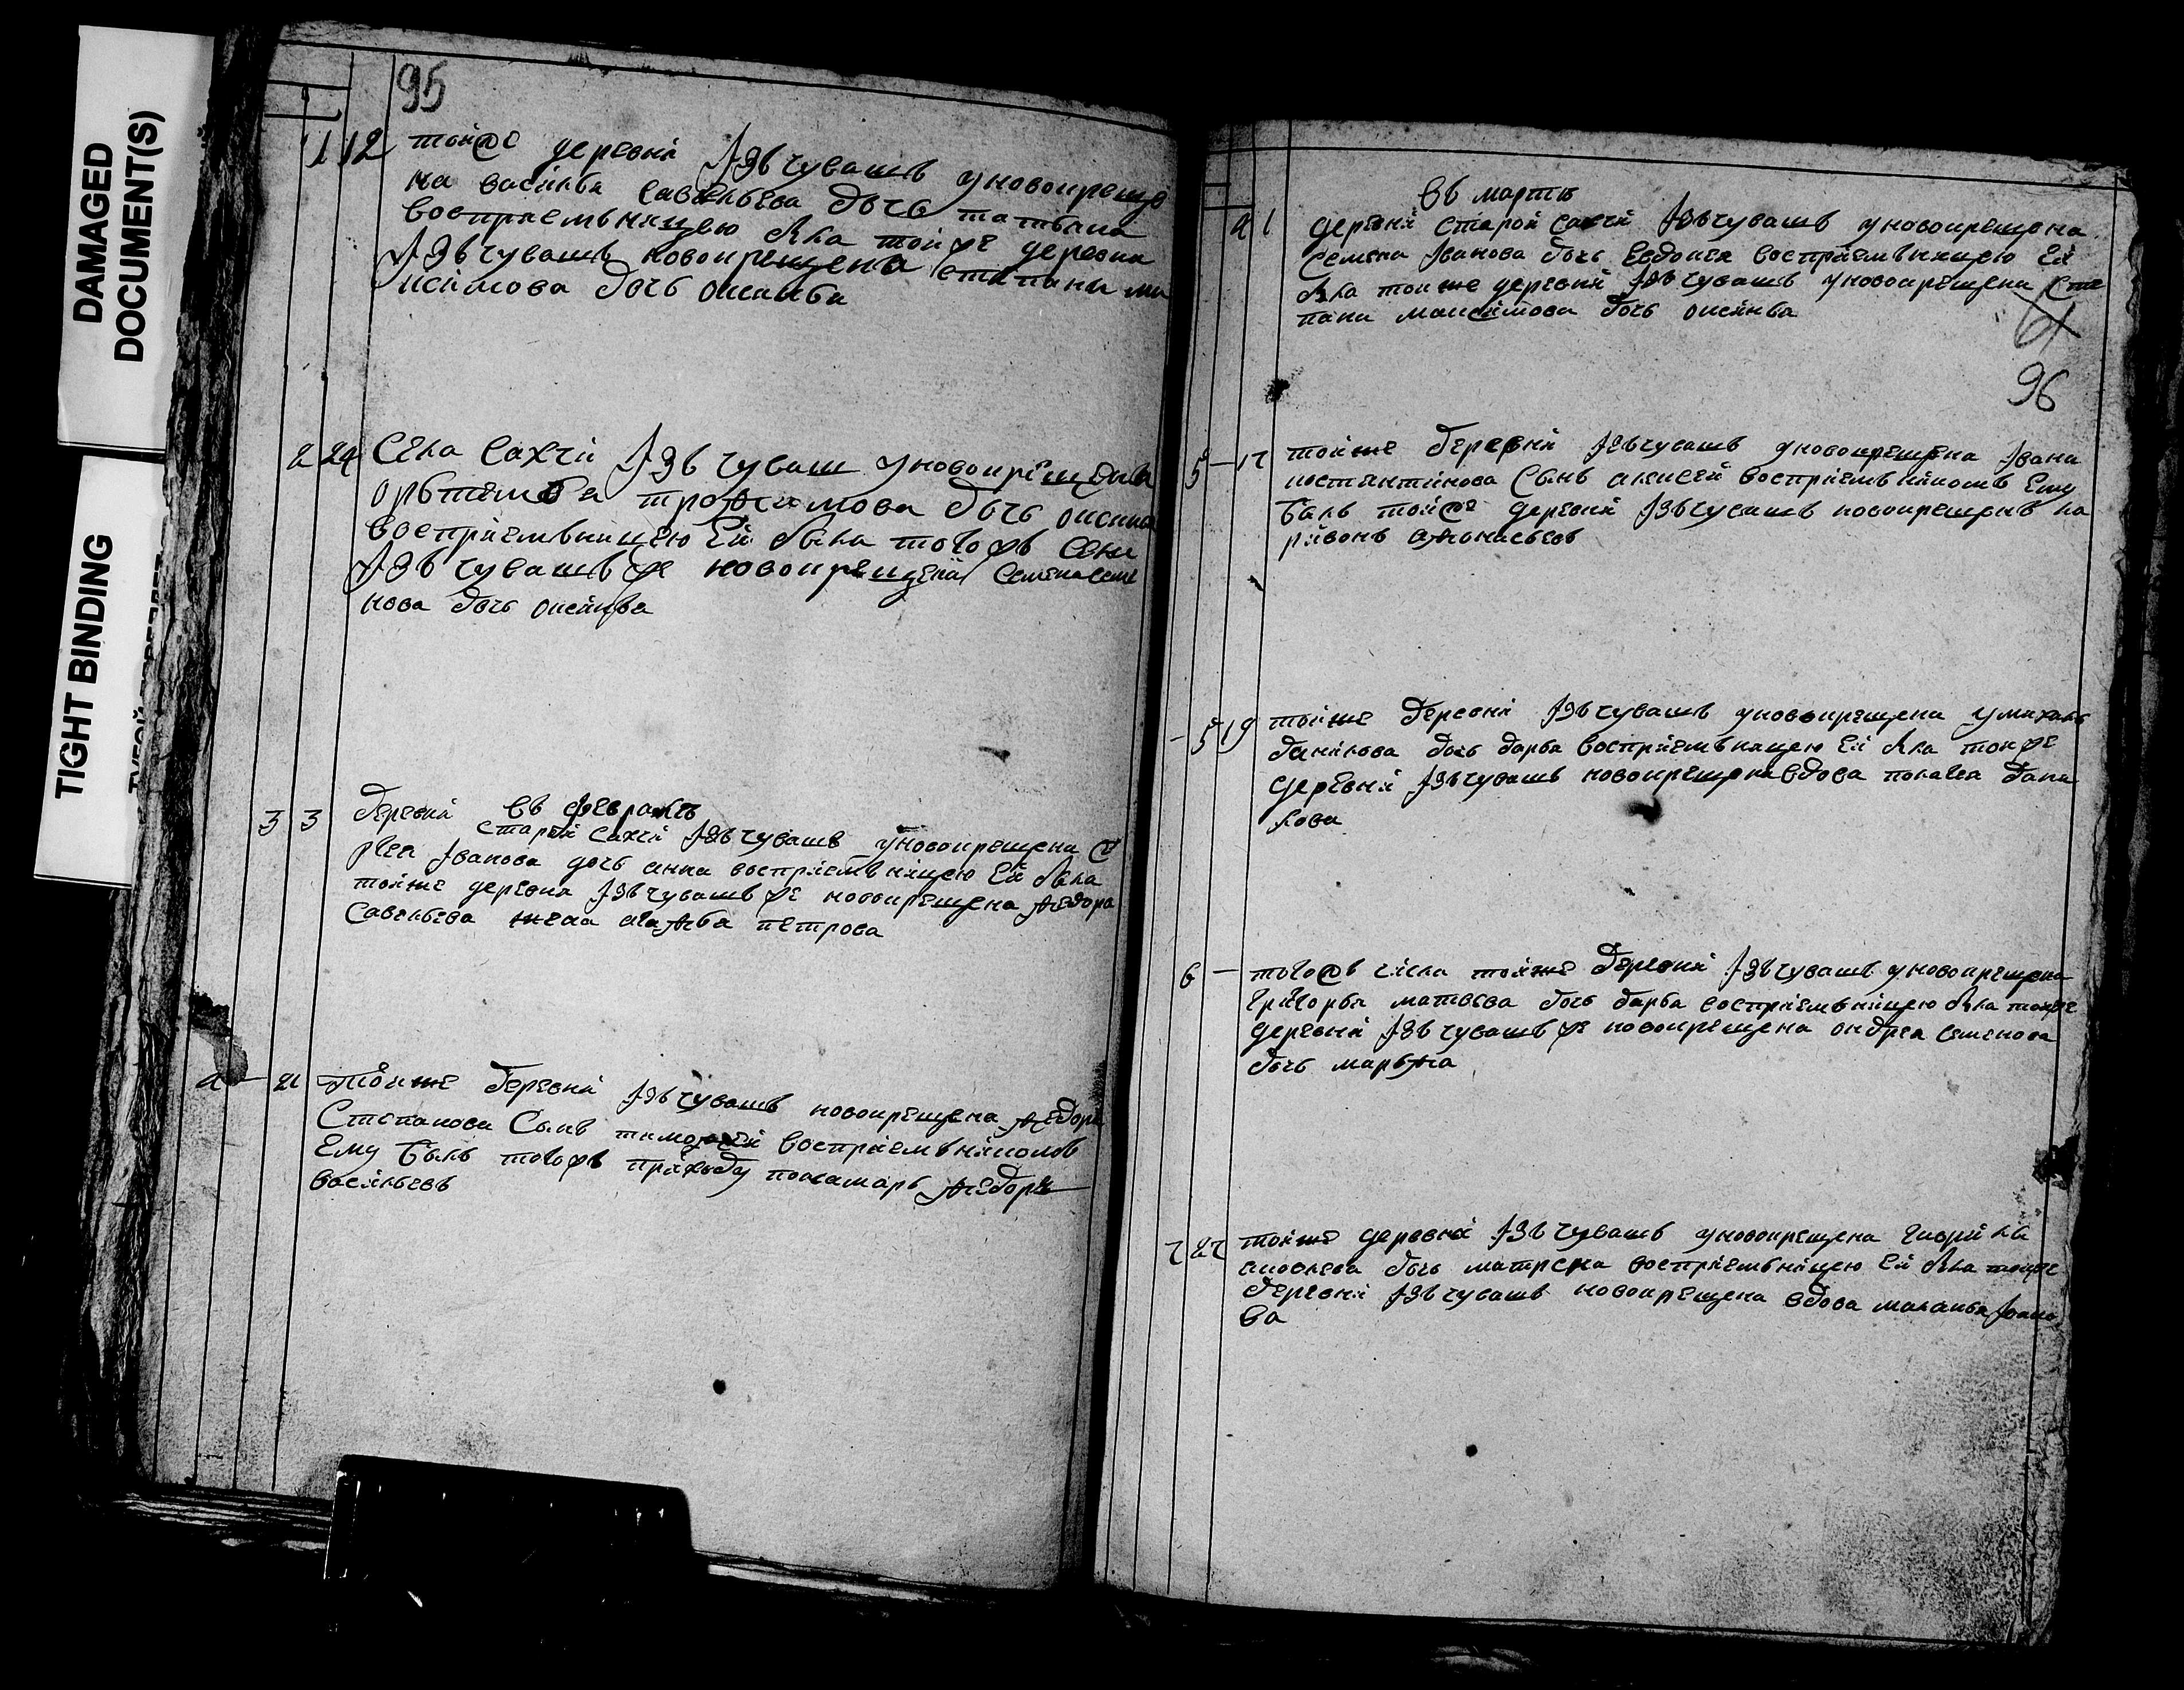 DAMAGED
DOCUMENT(S)
TIGHT BINDING
95
1 12 тойже деревни Iзъ чувашъ уновокреще
на василья савельева дочь татьяна
восприемьницею была тойже деревни
Iзъ чувашъ новокрещена степана ма
ксимова дочь оксинья
2 24 Села Сахчи Iзъ чуваш уновокрещена
артемья трофимова дочь оксинья
восприемьницею Ей была тогожъ села
Iзъ чувашъ же новокрещена семена семе
нова дочь оксинья
въ февралѣ
3 3 деревни старой сахчи Iзъ чувашъ уновокрещена
Iванова дочь анна восприемьницею Ей была
тойже деревни Iзъ чувашъ же новокрещена федора
савельева жена агафья петрова
21 тойже деревни Iзъ чувашъ новокрещена федора
Степанова Сынъ тимофей восприемьникомъ
Ему былъ тогожъ приходу пономарь федоръ
васильевъ
въ мартѣ
1 деревни старой сахчи Iзъ чувашъ уновокрещена
семена Iванова дочь Евдокея восприемьницею Ей
была тойже деревни Iзъ чувашъ уновокрещена сте
пана максимова дочь оксинья
96
5 17 тойже деревни Iзъ чувашъ уновокрещена Iвана
костянтинова Сынъ алексей восприемьникомъ Ему
былъ тойже деревни Iзъ чувашъ новокрещенъ ла
ривонъ афонасьевъ
5 19 тойже деревни Iзъ чувашъ уновокрещена
данилова дочь дарья восприемьницею Ей была тойже
деревни Iзъ чувашъ новокрещена вдова пелагея дани
лова
6 тогожъ числа тойже деревни Iзъ чувашъ уновокрещена
григорья матвеева дочь дарья восприемьницею была тойже
деревни Iзъ чувашъ же новокрещена ондрея семенова
дочь марьфа
7 27 тойже деревни Iзъ чувашъ уновокрещена гаврила
яковлева дочь матрена восприемьницею Ей была тойже
деревни Iзъ чувашъ новокрещена вдова маланья Iвано
ва